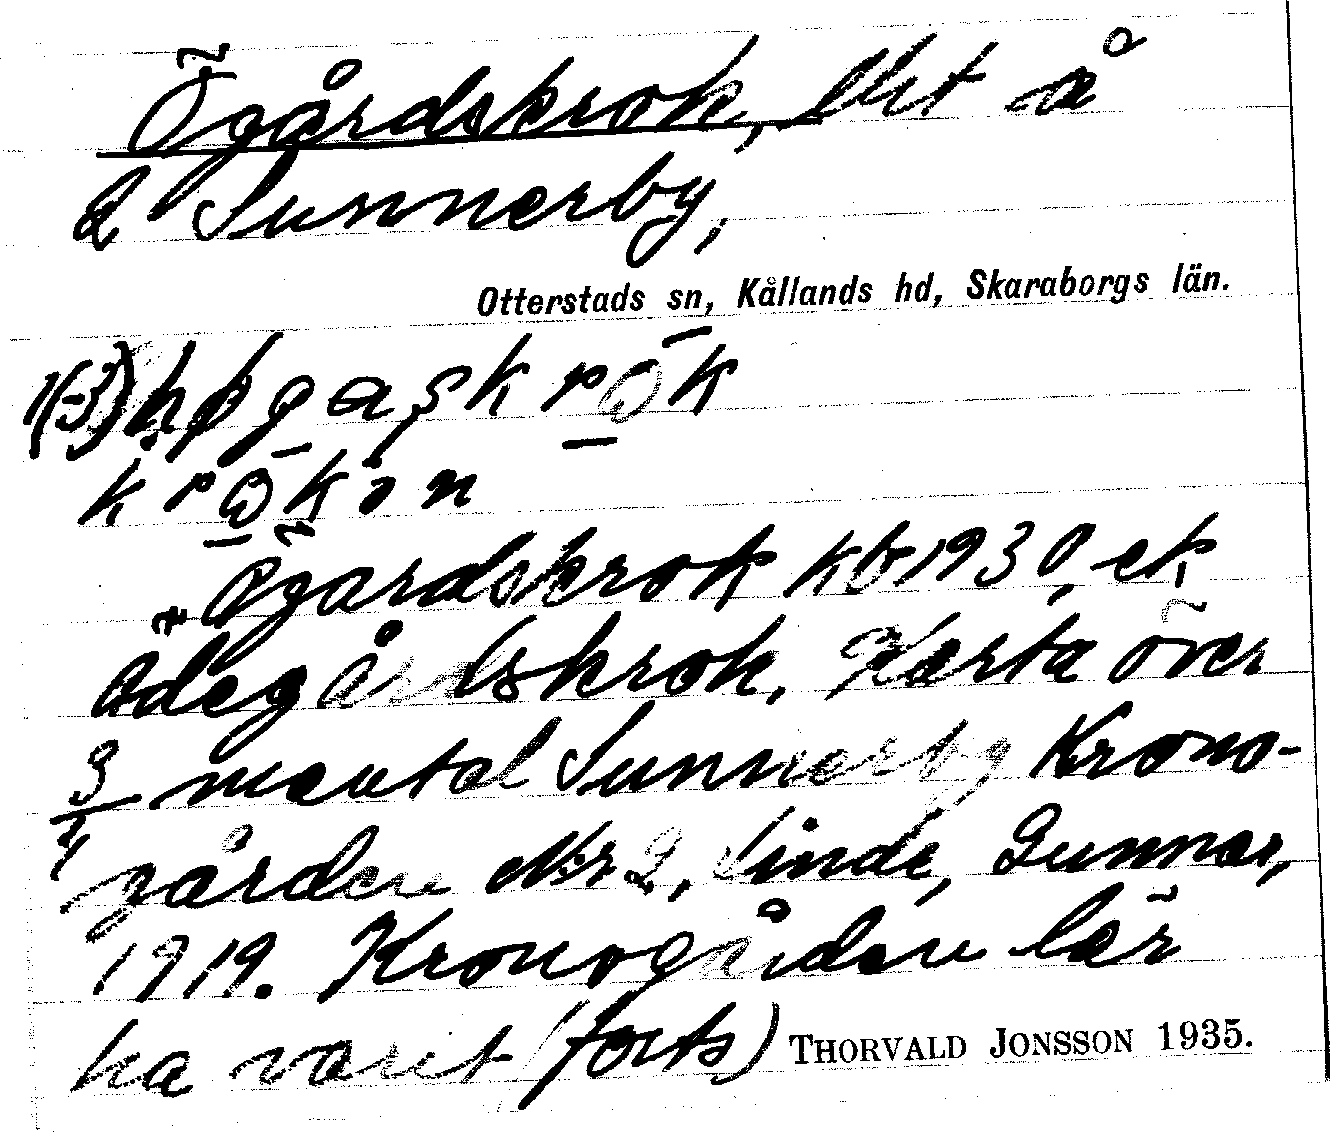 Ögårdskrok, Uet å
å Sunnerby,
Otterstads sn, Kållands hd, Skaraborgs län.
krokən
Ögardskrok kb 1930, ek
Ödegårdskrok, Karta över
3/4 mantal Sunnerby Krono-
gården Nr 2, Linde, Gunnar,
1919. Kronogården lär
ha varit (forts) THORVALD JONSSON 1935.